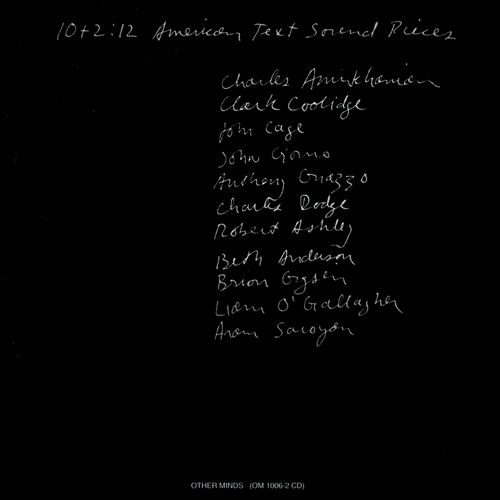 10+2:12 American Text Sound Pieces
Charles Amirkhanian
Clark Coolidge
John Cage
John Giorno
Anthony Gnazzo
Charles Dodge
Robert Ashley
Beth Anderson
Brion Gysin
Liam O'Gallagher
Aram Saroyan
OTHER MINDS (OM 1006-2 CD)